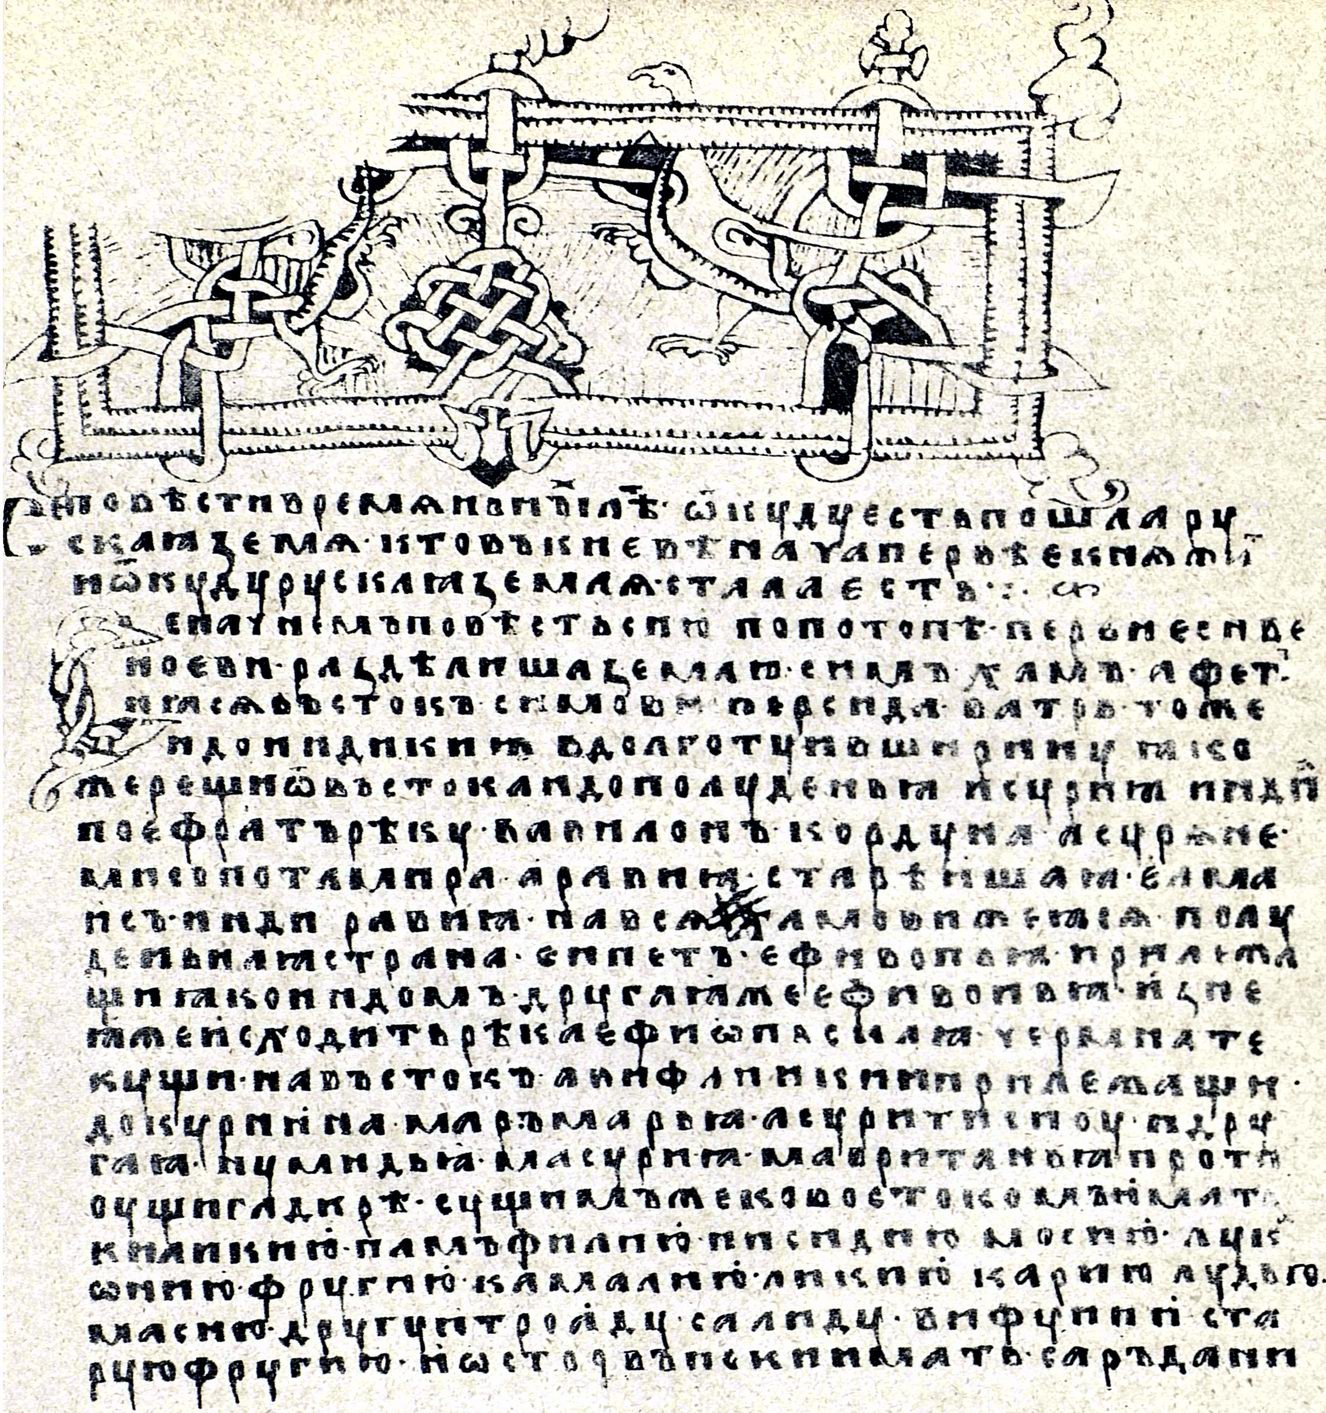 Се повѣсти времѧньнꙑⷯ лѣⷮ· ѿкуду есть пошла ру
скаꙗ землѧ· кто въ киевѣ нача первѣе кнѧжиⷮ
и ѿкуду рускаꙗ землѧ стала есть·:·
Се начнемъ повѣсть сию по потопѣ· первие снве
ноеви· раздѣлиша землю· симъ· хамъ· афетⷯ·
и ꙗсѧ въстокъ симови персида· ватрь· тоже
и до индикиꙗ в долготу и в ширину ꙗко
же рещи ѿ въстока и до полуденьꙗ и суриꙗ индиⷩ
по ефратъ рѣку· вавилонъ· кордуна асурѧне·
мисопотамира· аравиꙗ· старѣишаꙗ· елма
исъ· инди равиꙗ· на всѧ хамови же ꙗсѧ· полу
деньнаꙗ страна· еюпетъ· ефивопьꙗ· прилежа
щиꙗ ко индомъ· другаꙗ же ефивопьꙗ· из не
ꙗже исходить рѣка ефиѡпьскаꙗ· чермна те
кущи· на въстокъ· авифа ликии прилежащи·
до куриниꙗ· маръмарьꙗ· асурити сиоу· и дру
гаꙗ· нумидьꙗ· масуриꙗ· мавританьꙗ проти
оущи гадирѣ· сущимъ же ко востокомъ имать
киликию· памъфилию· писидию мосию· лук
ѡнию· фругию· камалию· ликию карию лудью·
масию· другую троаду· салиду· вифунию ста
рую фругию· и ѡстровъ пѣкии имать· саръдани